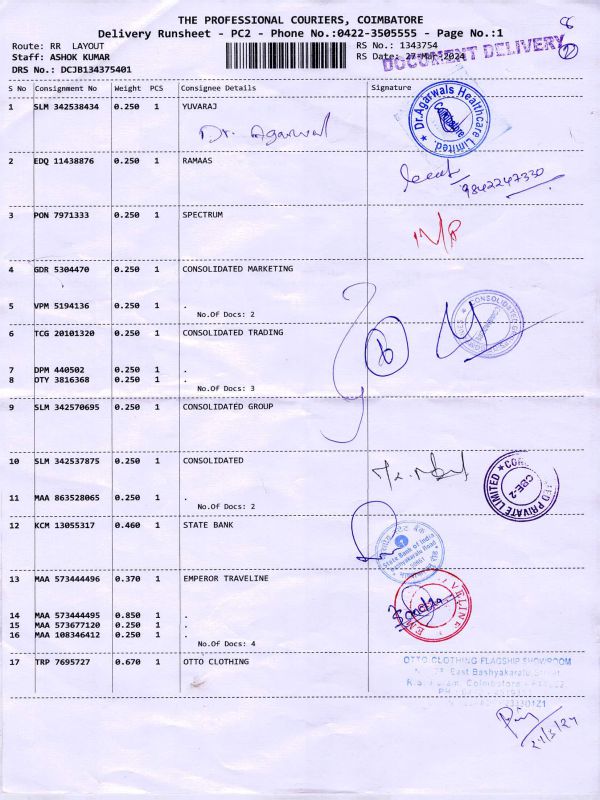 THE PROFESSIONAL COURIERS, COIMBATORE
Delivery Runsheet - PC2 - Phone No.:0422-3505555 - Page No.:1
Route: RR LAYOUT RS No.: 1343754
Staff: ASHOK KUMAR RS Date: 27-Mar-2024
DRS No.: DCJB134375401
DOCUMENT DELIVERY
S No Consignment No Weight PCS Consignee Details Signature
1 SLM 342538434 0.250 1 YUVARAJ
Dr. Agarwal
Dr.Agarwals Healthcare Limited.
Coimbatore
2 EDQ 11438876 0.250 1 RAMAAS
9842247330
3 PON 7971333 0.250 1 SPECTRUM
4 GDR 5304470 0.250 1 CONSOLIDATED MARKETING
5 VPM 5194136 0.250 1 .
No.Of Docs: 2
6 TCG 20101320 0.250 1 CONSOLIDATED TRADING
6
7 DPM 440502 0.250 1 .
8 OTY 3816368 0.250 1 .
No.Of Docs: 3
9 SLM 342570695 0.250 1 CONSOLIDATED GROUP
10 SLM 342537875 0.250 1 CONSOLIDATED
PRIVATE LIMITED
CBE-2
11 MAA 863528065 0.250 1 .
No.Of Docs: 2
12 KCM 13055317 0.460 1 STATE BANK
State Bank of India
13 MAA 573444496 0.370 1 EMPEROR TRAVELINE
14 MAA 573444495 0.850 1 .
15 MAA 573677120 0.250 1 .
16 MAA 108346412 0.250 1 .
No.Of Docs: 4
17 TRP 7695727 0.670 1 OTTO CLOTHING
OTTO CLOTHING FLAGSHIP SHOWROOM
East Bashyakaralu Street
Coimbatore